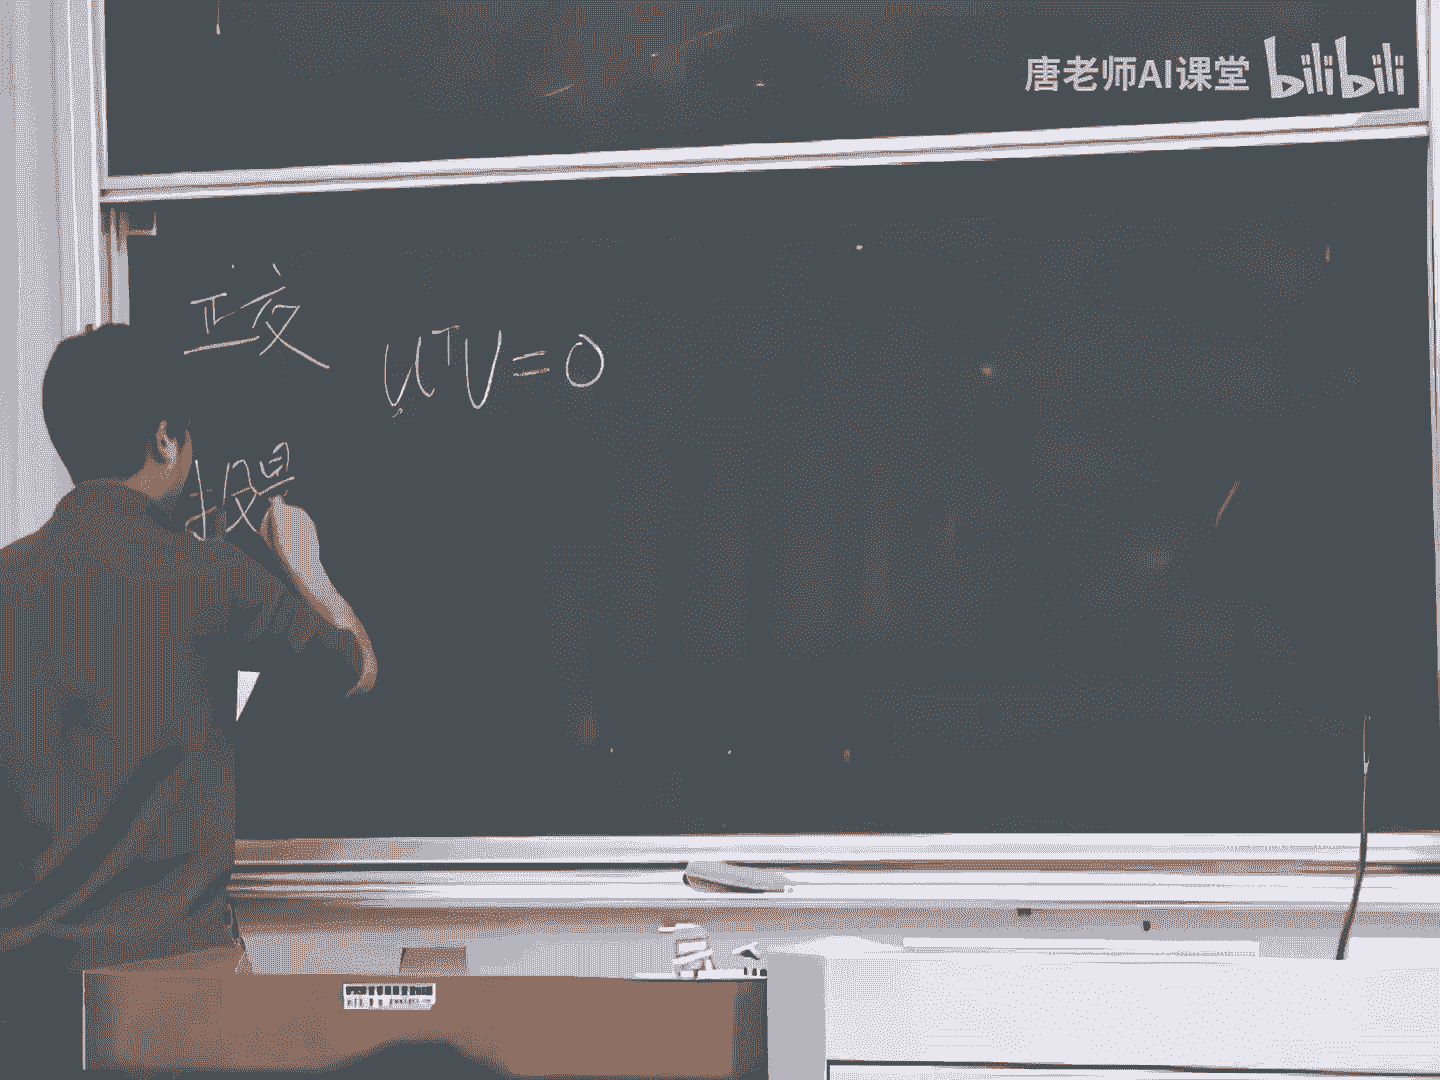 唐老师AI课堂 bilibili
正交 uᵀv=0
投